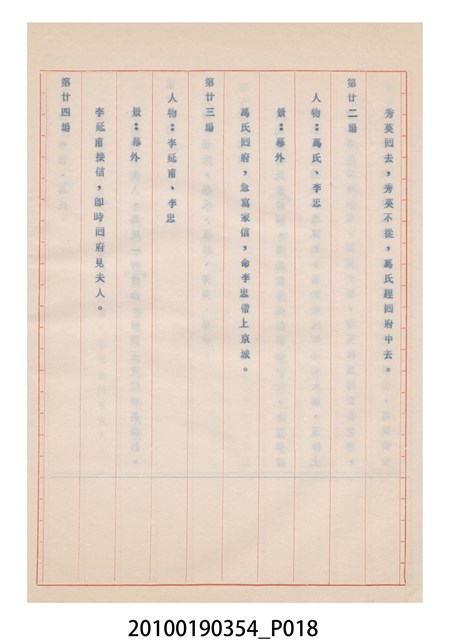 秀英回去，秀英不從，馬氏趕回府中去。
第廿二場
人物：馬氏、李忠
景：幕外
馬氏回府，急寫家信，命李忠帶上京城。
第廿三場
人物：李延甫、李忠
景：幕外
李延甫接信，即時回府見夫人。
第廿四場
20100190354_P018